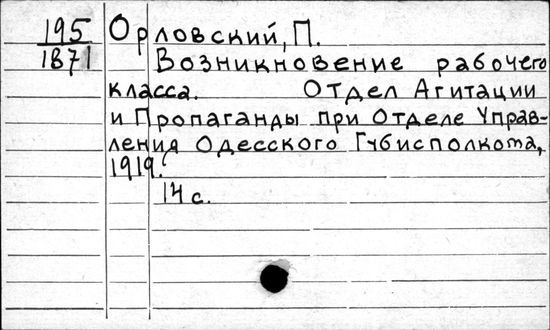 195 Орловский, П.
1871 Возникновение рабочего
класса. Отдел Агитации
и Пропаганды при Отделе Управ-
ления Одесского Губисполкома,
1919.
14 с.